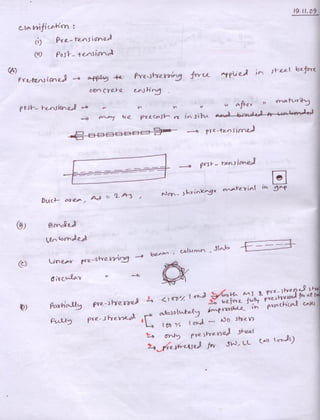 19.11.09
Classification :
(i) Pre-tensioned
(ii) Post-tensioned
(A)
Pretensioned → Prestressing force applied in steel before
concrete casting.
post-tensioned → " " " " after " maturity
→ may be precast or insitu and bonded or unbonded
→ pre-tensioned
→ post-tensioned
Duct area, Ad = 2.As, Non-shrinkage material in gap
(B) Bonded
Unbonded
(C) Linear pre-stressing → beam, column, slab
Circular " →
D) Partially pre-stressed <100% load with
before fully prestressed
Fully pre-stressed absolutely impossible in practical cases
100% load – No stress
only prestressed steel
Prestressed for SW, LL (all loads)